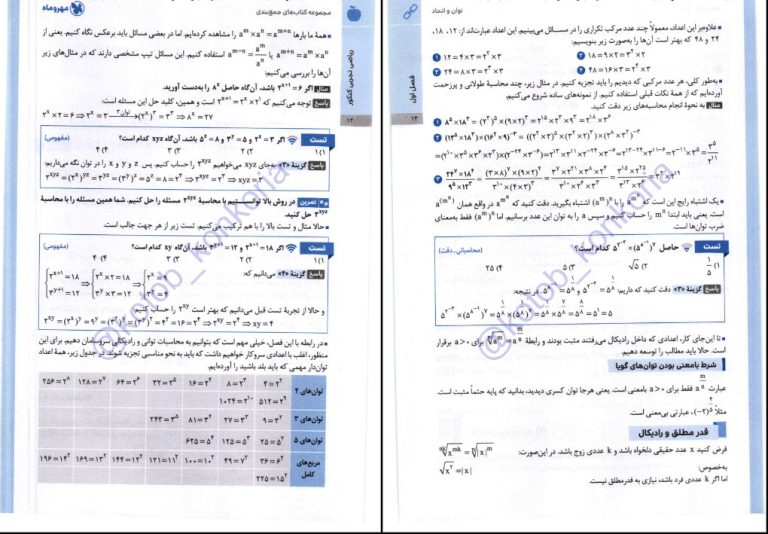 توان و اتحاد
فصل اول
۱۴
• علاوه‌بر این اعداد، معمولاً چند عدد مرکب تکراری را در مسائل می‌بینیم. این اعداد عبارت‌اند از: ۱۲، ۱۸،
۲۴ و ۴۸ که بهتر است آن‌ها را به‌صورت زیر بنویسیم:
۱ ۱۲=۴×۳=۲^۲×۳ ۲ ۱۸=۹×۲=۳^۲×۲
۳ ۲۴=۸×۳=۲^۳×۳ ۴ ۴۸=۱۶×۳=۲^۴×۳
• به‌طور کلی، هر عدد مرکبی که دیدیم را باید تجزیه کنیم. در مثال زیر، چند محاسبهٔ طولانی و پرزحمت
آورده‌ایم که از همهٔ نکات قبلی استفاده کنیم. از نمونه‌های ساده شروع می‌کنیم.
مثال به نحوهٔ انجام محاسبه‌های زیر دقت کنید.
• یک اشتباه رایج این است که
است. یعنی باید ابتدا
ضرب توان‌ها است.
تست حاصل ۵^{۲^{-۳}}×(۵^{۸^{-۱}})^۷ کدام است؟ (محاسباتی، دقت)
۱) ۱/۵ ۲) √۵ ۳) ۵ ۴) ۲۵
پاسخ گزینهٔ «۳» دقت کنید که داریم: در نتیجه:
• تا این‌جای کار، اعدادی که داخل رادیکال می‌رفتند مثبت بودند و رابطهٔ برای a>۰ برقرار
است. حالا باید مطالب را توسعه دهیم.
شرط بامعنی بودن توان‌های گویا
عبارت a^{m/n} فقط برای a>۰ بامعنی است. یعنی هرجا توان کسری دیدید، بدانید که پایه حتماً مثبت است.
قدر مطلق و رادیکال
فرض کنید x عدد حقیقی دلخواه باشد و k عددی زوج باشد. در این‌صورت:
به‌خصوص: √x^۲=|x|
اما اگر k عددی فرد باشد، نیازی به قدرمطلق نیست.
مجموعه کتاب‌های جمع‌بندی
مهروماه
ریاضی تجربی کنکور
۱۳
• همهٔ ما بارها a^{m+n}=a^m×a^n را مشاهده کرده‌ایم. اما در بعضی مسائل باید برعکس نگاه کنیم. یعنی از
a^{m+n}=a^m×a^n یا a^{m-n}=a^m/a^n استفاده کنیم. این مسائل تیپ مشخصی دارند که در مثال‌های زیر
آن‌ها را بررسی می‌کنیم:
مثال اگر ۲^{x+۱}=۶ باشد، آن‌گاه حاصل ۸^x را به‌دست آورید.
پاسخ توجه می‌کنیم که ۲^{x+۱}=۲^x×۲^۱ است و همین، کلید حل این مسئله است:
۲^x×۲=۶⇒۲^x=۳ ⇒(۲^x)^۳=۳^۳⇒۸^x=۲۷
تست اگر ۲^x=۳ و ۳^y=۵ و ۵^z=۸ باشد، آن‌گاه xyz کدام است؟ (مفهومی)
۱) ۱ ۲) ۲ ۳) ۳ ۴) ۴
پاسخ گزینهٔ «۳» به‌جای xyz می‌خواهیم ۲^{xyz} را حساب کنیم. پس x و y و z را در توان نگه می‌داریم:
۲^{xyz}=(۲^x)^{yz}=۳^{yz}=(۳^y)^z=۵^z=۸=۲^۳⇒۲^{xyz}=۲^۳⇒xyz=۳
تمرین در روش بالا توانستیم با محاسبهٔ ۲^{xyz} مسئله را حل کنیم. شما همین مسئله را با محاسبهٔ
حل کنید.
• حالا مثال و تست بالا را با هم ترکیب می‌کنیم. تست زیر از هر جهت جالب است.
تست اگر ۲^{x+۱}=۱۸ و ۳^{y+۱}=۱۲ باشد، آن‌گاه xy کدام است؟ (مفهومی)
۱) ۱ ۲) ۲ ۳) ۳ ۴) ۴
پاسخ گزینهٔ «۴» می‌دانیم که:
۲^{x+۱}=۱۸ ⇒ ۲^x×۲=۱۸ ⇒ ۲^x=۹
۳^{y+۱}=۱۲ ⇒ ۳^y×۳=۱۲ ⇒ ۳^y=۴
و حالا از تجربهٔ تست قبل می‌دانیم که بهتر است ۲^{xy} را حساب کنیم:
۲^{xy}=(۲^x)^y=۹^y=(۳^۲)^y=(۳^y)^۲=۴^۲=۱۶=۲^۴⇒۲^{xy}=۲^۴⇒xy=۴
• در رابطه با این فصل، خیلی مهم است که بتوانیم به محاسبات توانی و رادیکالی سروسامان دهیم. برای این
منظور، اغلب با اعدادی سروکار خواهیم داشت که باید به نحو مناسبی تجزیه شوند. در جدول زیر، همهٔ اعداد
توان‌دار مهمی که باید بلد باشید را آورده‌ایم.
توان‌های ۲ ۴=۲^۲ ۸=۲^۳ ۱۶=۲^۴ ۳۲=۲^۵ ۶۴=۲^۶ ۱۲۸=۲^۷ ۲۵۶=۲^۸
۵۱۲=۲^۹ ۱۰۲۴=۲^{۱۰}
توان‌های ۳ ۹=۳^۲ ۲۷=۳^۳ ۸۱=۳^۴ ۲۴۳=۳^۵
توان‌های ۵ ۲۵=۵^۲ ۱۲۵=۵^۳ ۶۲۵=۵^۴
مربع‌های کامل ۳۶=۶^۲ ۴۹=۷^۲ ۱۰۰=۱۰^۲ ۱۲۱=۱۱^۲ ۱۴۴=۱۲^۲ ۱۶۹=۱۳^۲ ۱۹۶=۱۴^۲
۲۲۵=۱۵^۲
@kotob_konkoria
@kotob_konkoria